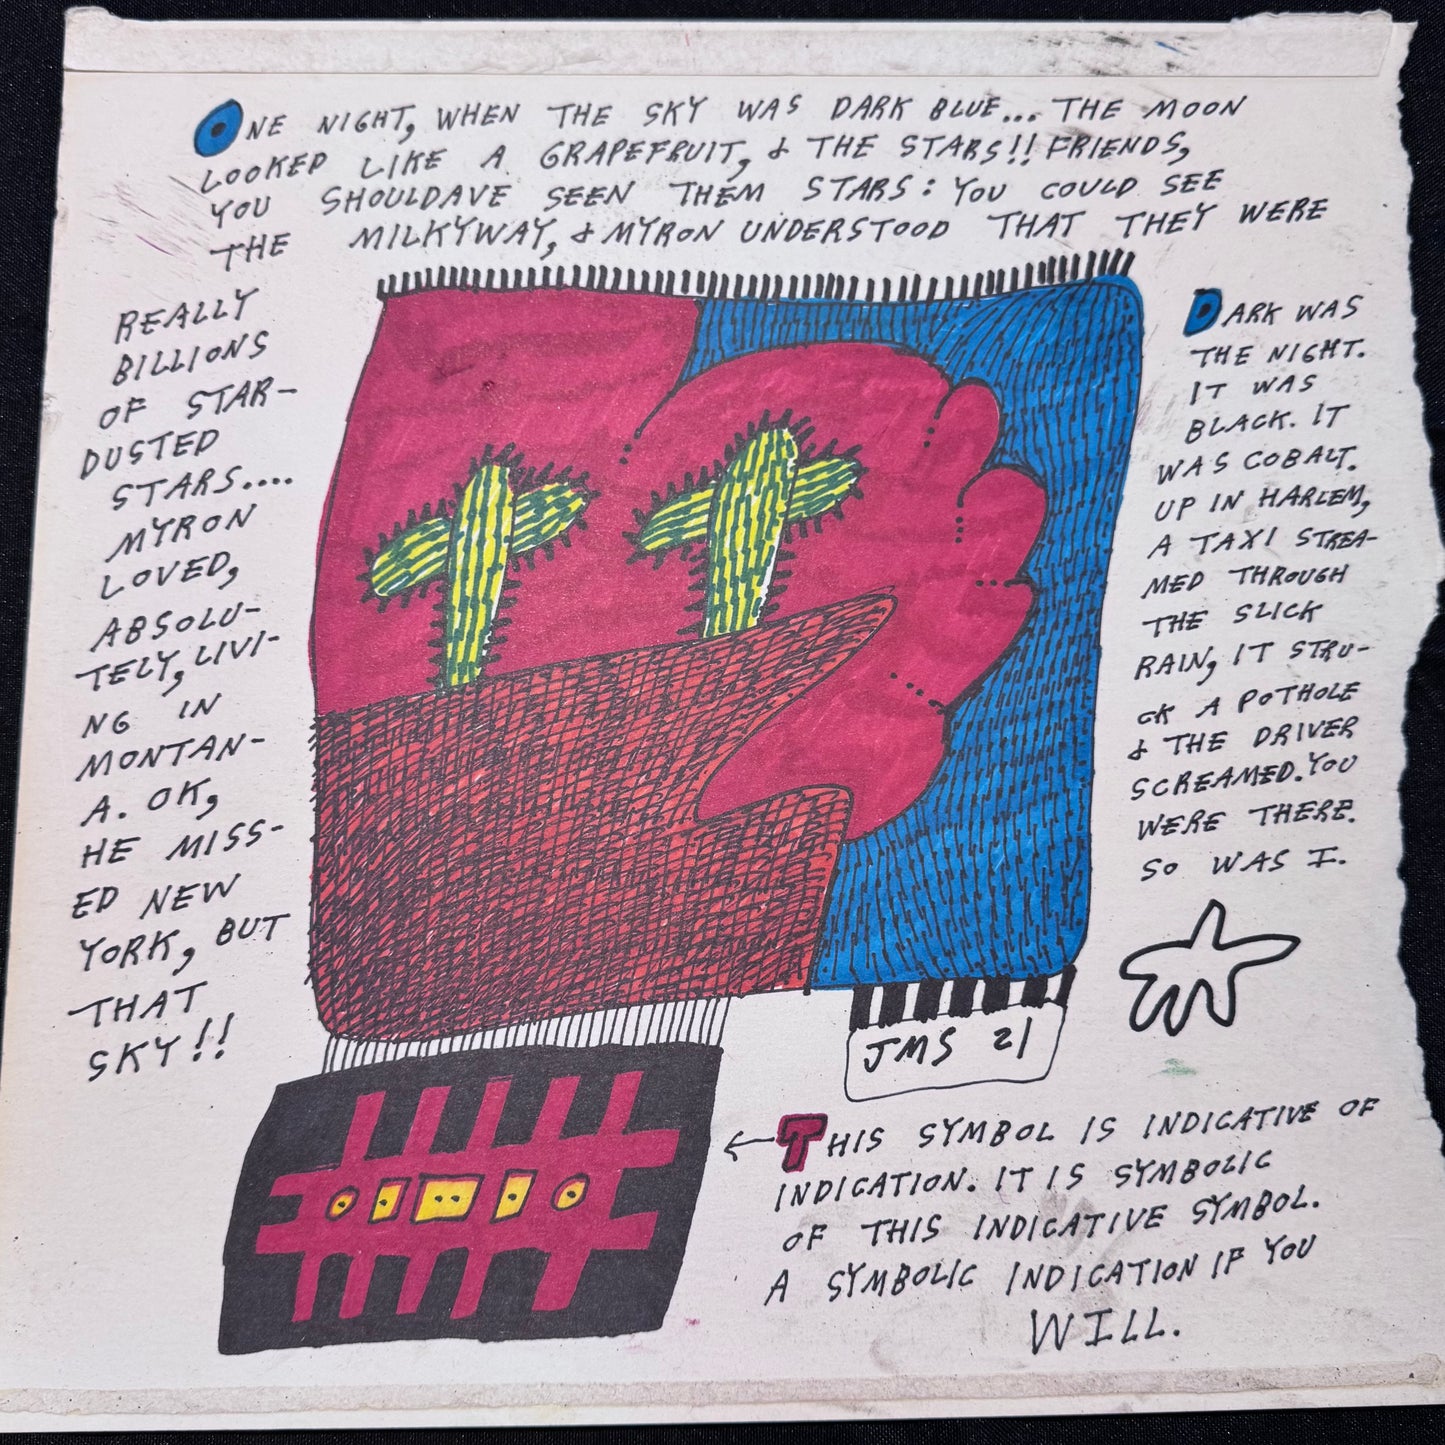 ONE NIGHT, WHEN THE SKY WAS DARK BLUE... THE MOON
LOOKED LIKE A GRAPEFRUIT, & THE STARS!! FRIENDS,
YOU SHOULDAVE SEEN THEM STARS: YOU COULD SEE
THE MILKYWAY, & MYRON UNDERSTOOD THAT THEY WERE
REALLY
BILLIONS
OF STAR-
DUSTED
STARS....
MYRON
LOVED,
ABSOLU-
TELY, LIVI-
NG IN
MONTAN-
A. OK,
HE MISS-
ED NEW
YORK, BUT
THAT
SKY!!
DARK WAS
THE NIGHT.
IT WAS
BLACK. IT
WAS COBALT.
UP IN HARLEM,
A TAXI STREA-
MED THROUGH
THE SLICK
RAIN, IT STRU-
CK A POTHOLE
& THE DRIVER
SCREAMED. YOU
WERE THERE.
SO WAS I.
JMS 21
THIS SYMBOL IS INDICATIVE OF
INDICATION. IT IS SYMBOLIC
OF THIS INDICATIVE SYMBOL.
A SYMBOLIC INDICATION IF YOU
WILL.